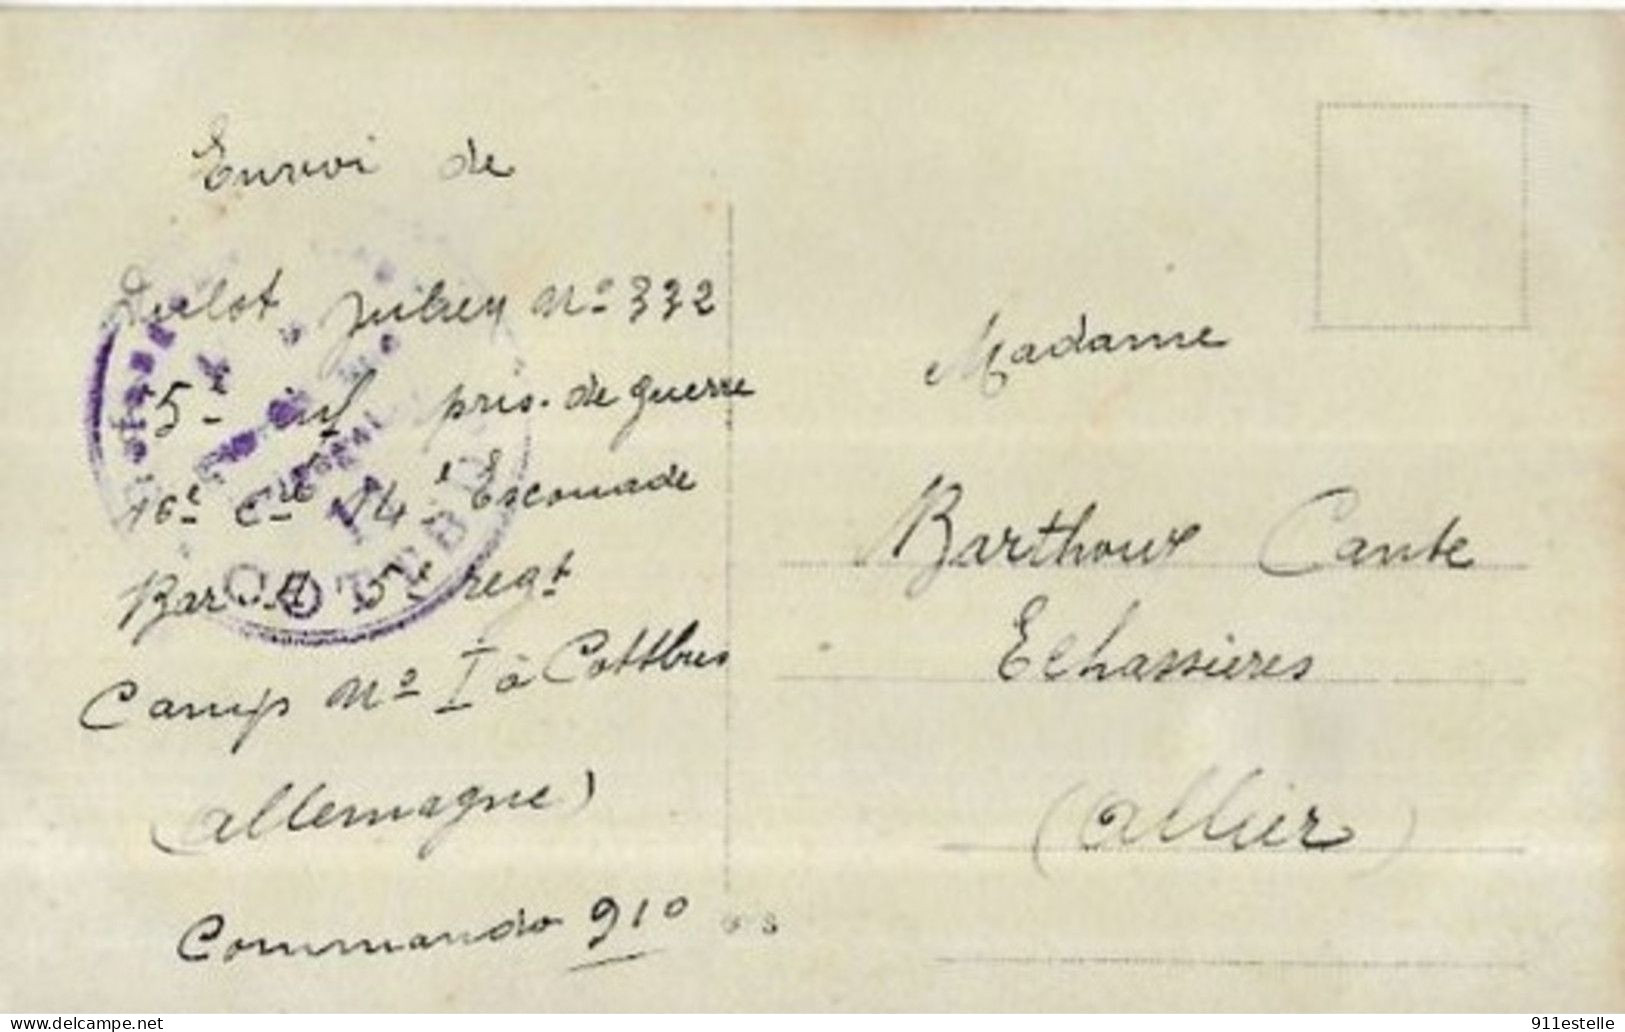 Envoi de
Julien No 332
5e pris. de guerre
16e Cie 14e Escouade
Bar 5e regt
Camp No I à Cottbus
(Allemagne)
Commando 910
Madame
Barthoux Cante
Echassières
(Allier)
COTTBUS
www.delcampe.net
911estelle